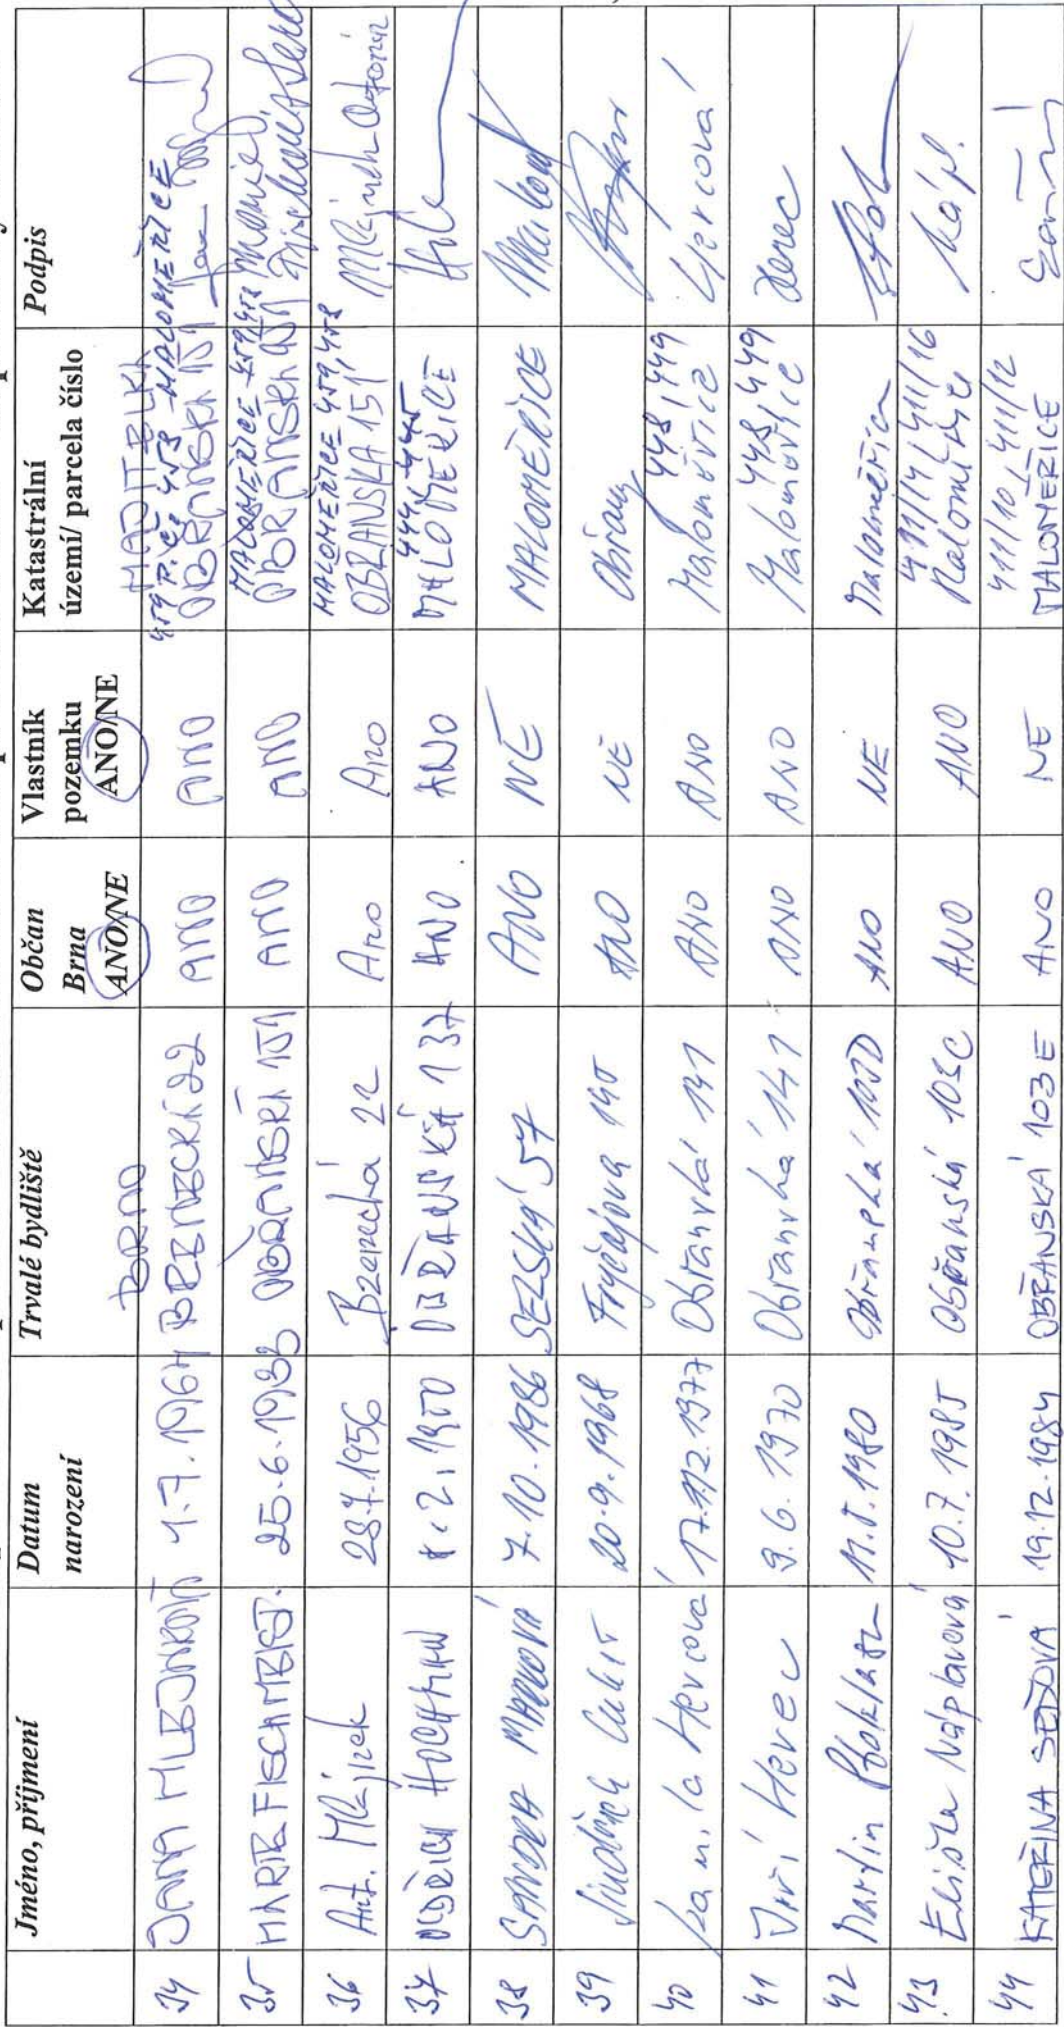 Jméno, příjmení | Datum narození | Trvalé bydliště | Občan Brna ANO/NE | Vlastník pozemku ANO/NE | Katastrální území/ parcela číslo | Podpis
34 | JANA | 1.7.1964 | BRNO 22 | ANO | ANO | MAJITELKA 459 P.Č. 458 MALOMĚŘICE OBŘANSKÁ 151
35 | MARIE | 25.6.1932 | OBŘANSKÁ 151 | ANO | ANO | MALOMĚŘICE 459, 458 OBŘANSKÁ 151
36 | Ant. Mlejnek | 28.7.1956 | Bzenecká 22 | Ano | Ano | MALOMĚŘICE 459, 458 OBŘANSKÁ 151 | Mlejnek Antonín
37 | OLDŘICH HOCHMAN | 2. 1950 | OBŘANSKÁ 137 | ANO | ANO | 444, 445 MALOMĚŘICE
38 | SANDRA | 7.10.1986 | SELSKÁ 57 | ANO | NE | MALOMĚŘICE
39 | 20.9.1968 | Fryčajova | ANO | NE | Obřany
40 | Kamila Hercová | 17.12.1977 | Obřanská 141 | ANO | ANO | 448, 449 Maloměřice | Hercová
41 | Jiří Herec | 9.6.1970 | Obřanská 141 | ANO | ANO | 448, 449 Maloměřice | Herec
42 | Martin | 11.5.1980 | Obřanská | ANO | NE | Maloměřice
43 | Eliška Náplavová | 10.7.1985 | Obřanská 103C | ANO | ANO | 411/14, 411/16 Maloměřice | Nápl.
44 | KATEŘINA | 19.12.1984 | OBŘANSKÁ 103E | ANO | NE | 411/10, 411/12 MALOMĚŘICE